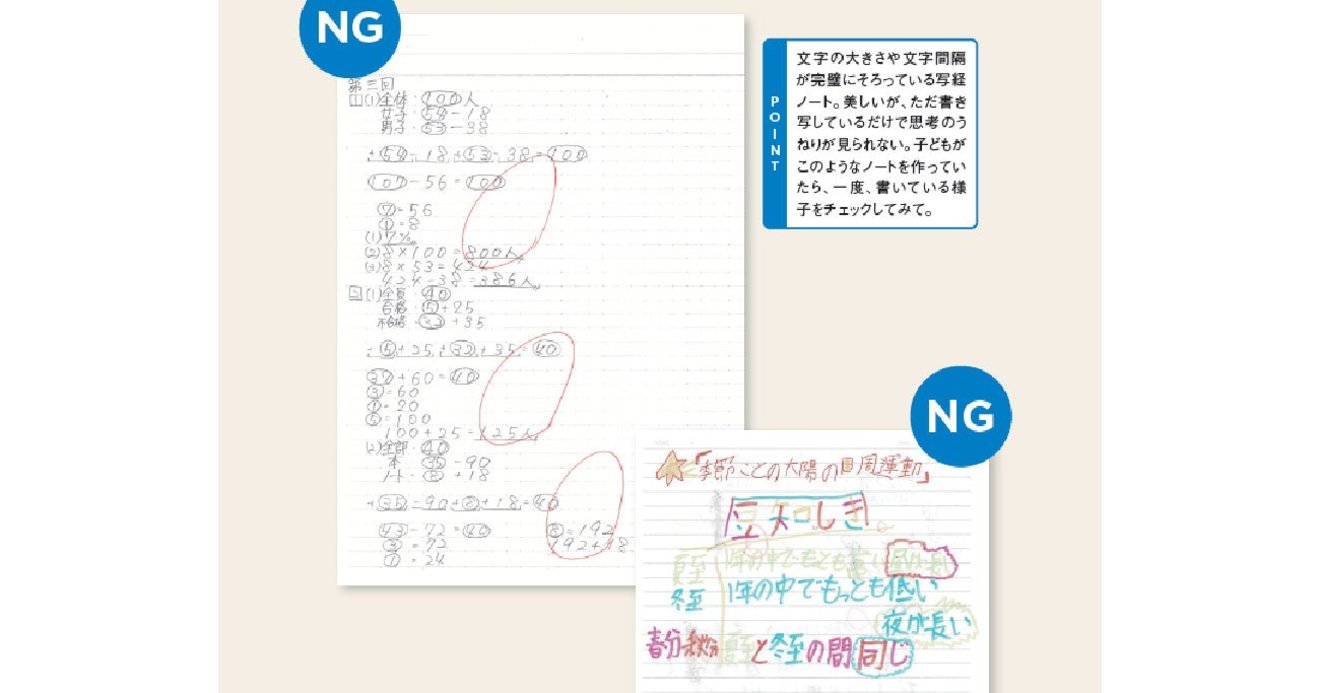 NG
第三回
(1)全体・100人
女子・54-18
男子・53-38
54-18+53-38=100
107-56=100
7=56
1=8
(1)7%
(2)8×100=800人
(3)8×53=424
424-38=386人
(1)全員・40
合格・5+25
不合格・32+35
5+25+32+35=40
37+60=40
3=60
1=20
5=100
100+25=125人
(2)全部・40
本・35-90
ノート・8+18
35-90+8+18=40
43-72=40
3=72
1=24
8=192
192+18
POINT
文字の大きさや文字間隔
が完璧にそろっている写経
ノート。美しいが、ただ書き
写しているだけで思考のう
ねりが見られない。子どもが
このようなノートを作ってい
たら、一度、書いている様
子をチェックしてみて。
NG
「季節ごとの太陽の日周運動」
豆知しき
夏至 1年の中でもっとも高い 昼が長い
冬至 1年の中でもっとも低い
夜が長い
春分秋分 夏至と冬至の間 同じ